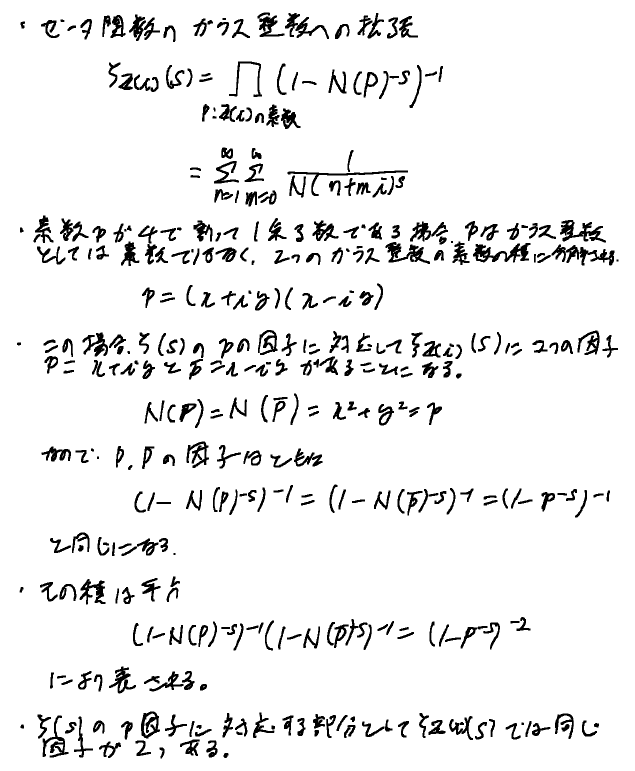 ・ゼータ関数のガウス整数への拡張
ζZ(i)(s) = ∏ (1 - N(P)^-s)^-1
P:Z(i)の素数
= ∞Σn=1 ∞Σm=0 1/N(n+mi)^s
・素数pが4で割って1余る数である場合、pはガウス整数
としては素数ではなく、2つのガウス整数の素数の積に分解される.
p = (x+iy)(x-iy)
・この場合、ζ(s)のpの因子に対応してζZ(i)(s)に2つの因子
P = x+iyとP̄ = x-iyがあることになる。
N(P) = N(P̄) = x²+y² = p
なので、P, P̄の因子はともに
(1 - N(P)^-s)^-1 = (1 - N(P̄)^-s)^-1 = (1 - p^-s)^-1
と同じになる.
・その積は平方
(1-N(P)^-s)^-1(1-N(P̄)^-s)^-1 = (1-p^-s)^-2
により表される。
・ζ(s)のp因子に対応する部分としてζZ(i)(s)では同じ
因子が2つある。